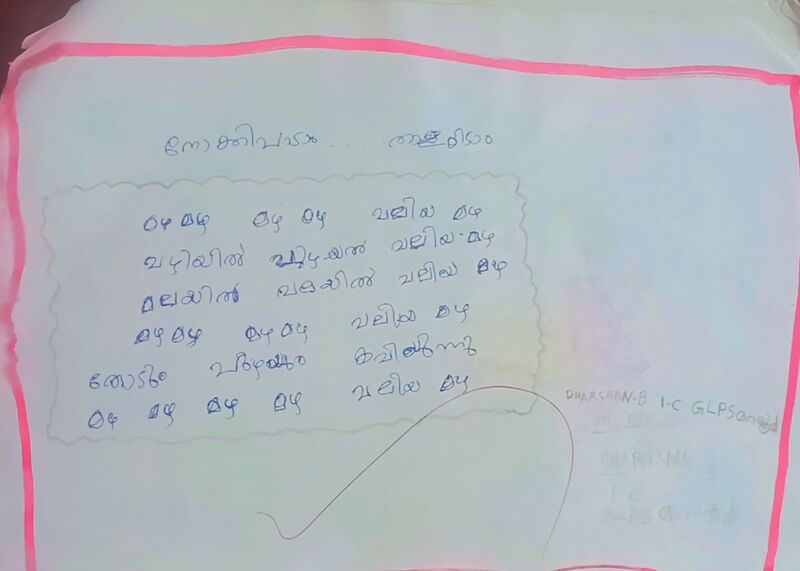 നോക്കിപാടാം.....താളമിടാം
മഴ മഴ മഴ മഴ വലിയ മഴ
വഴിയിൽ പുഴയിൽ വലിയ മഴ
മലയിൽ വലയിൽ വലിയ മഴ
മഴ മഴ മഴ മഴ വലിയ മഴ
തോടും പുഴയും കവിയുന്നു
മഴ മഴ മഴ മഴ വലിയ മഴ
DHARSHAN.B 1.C GLPS
DHARSAN
1 C
GLPS